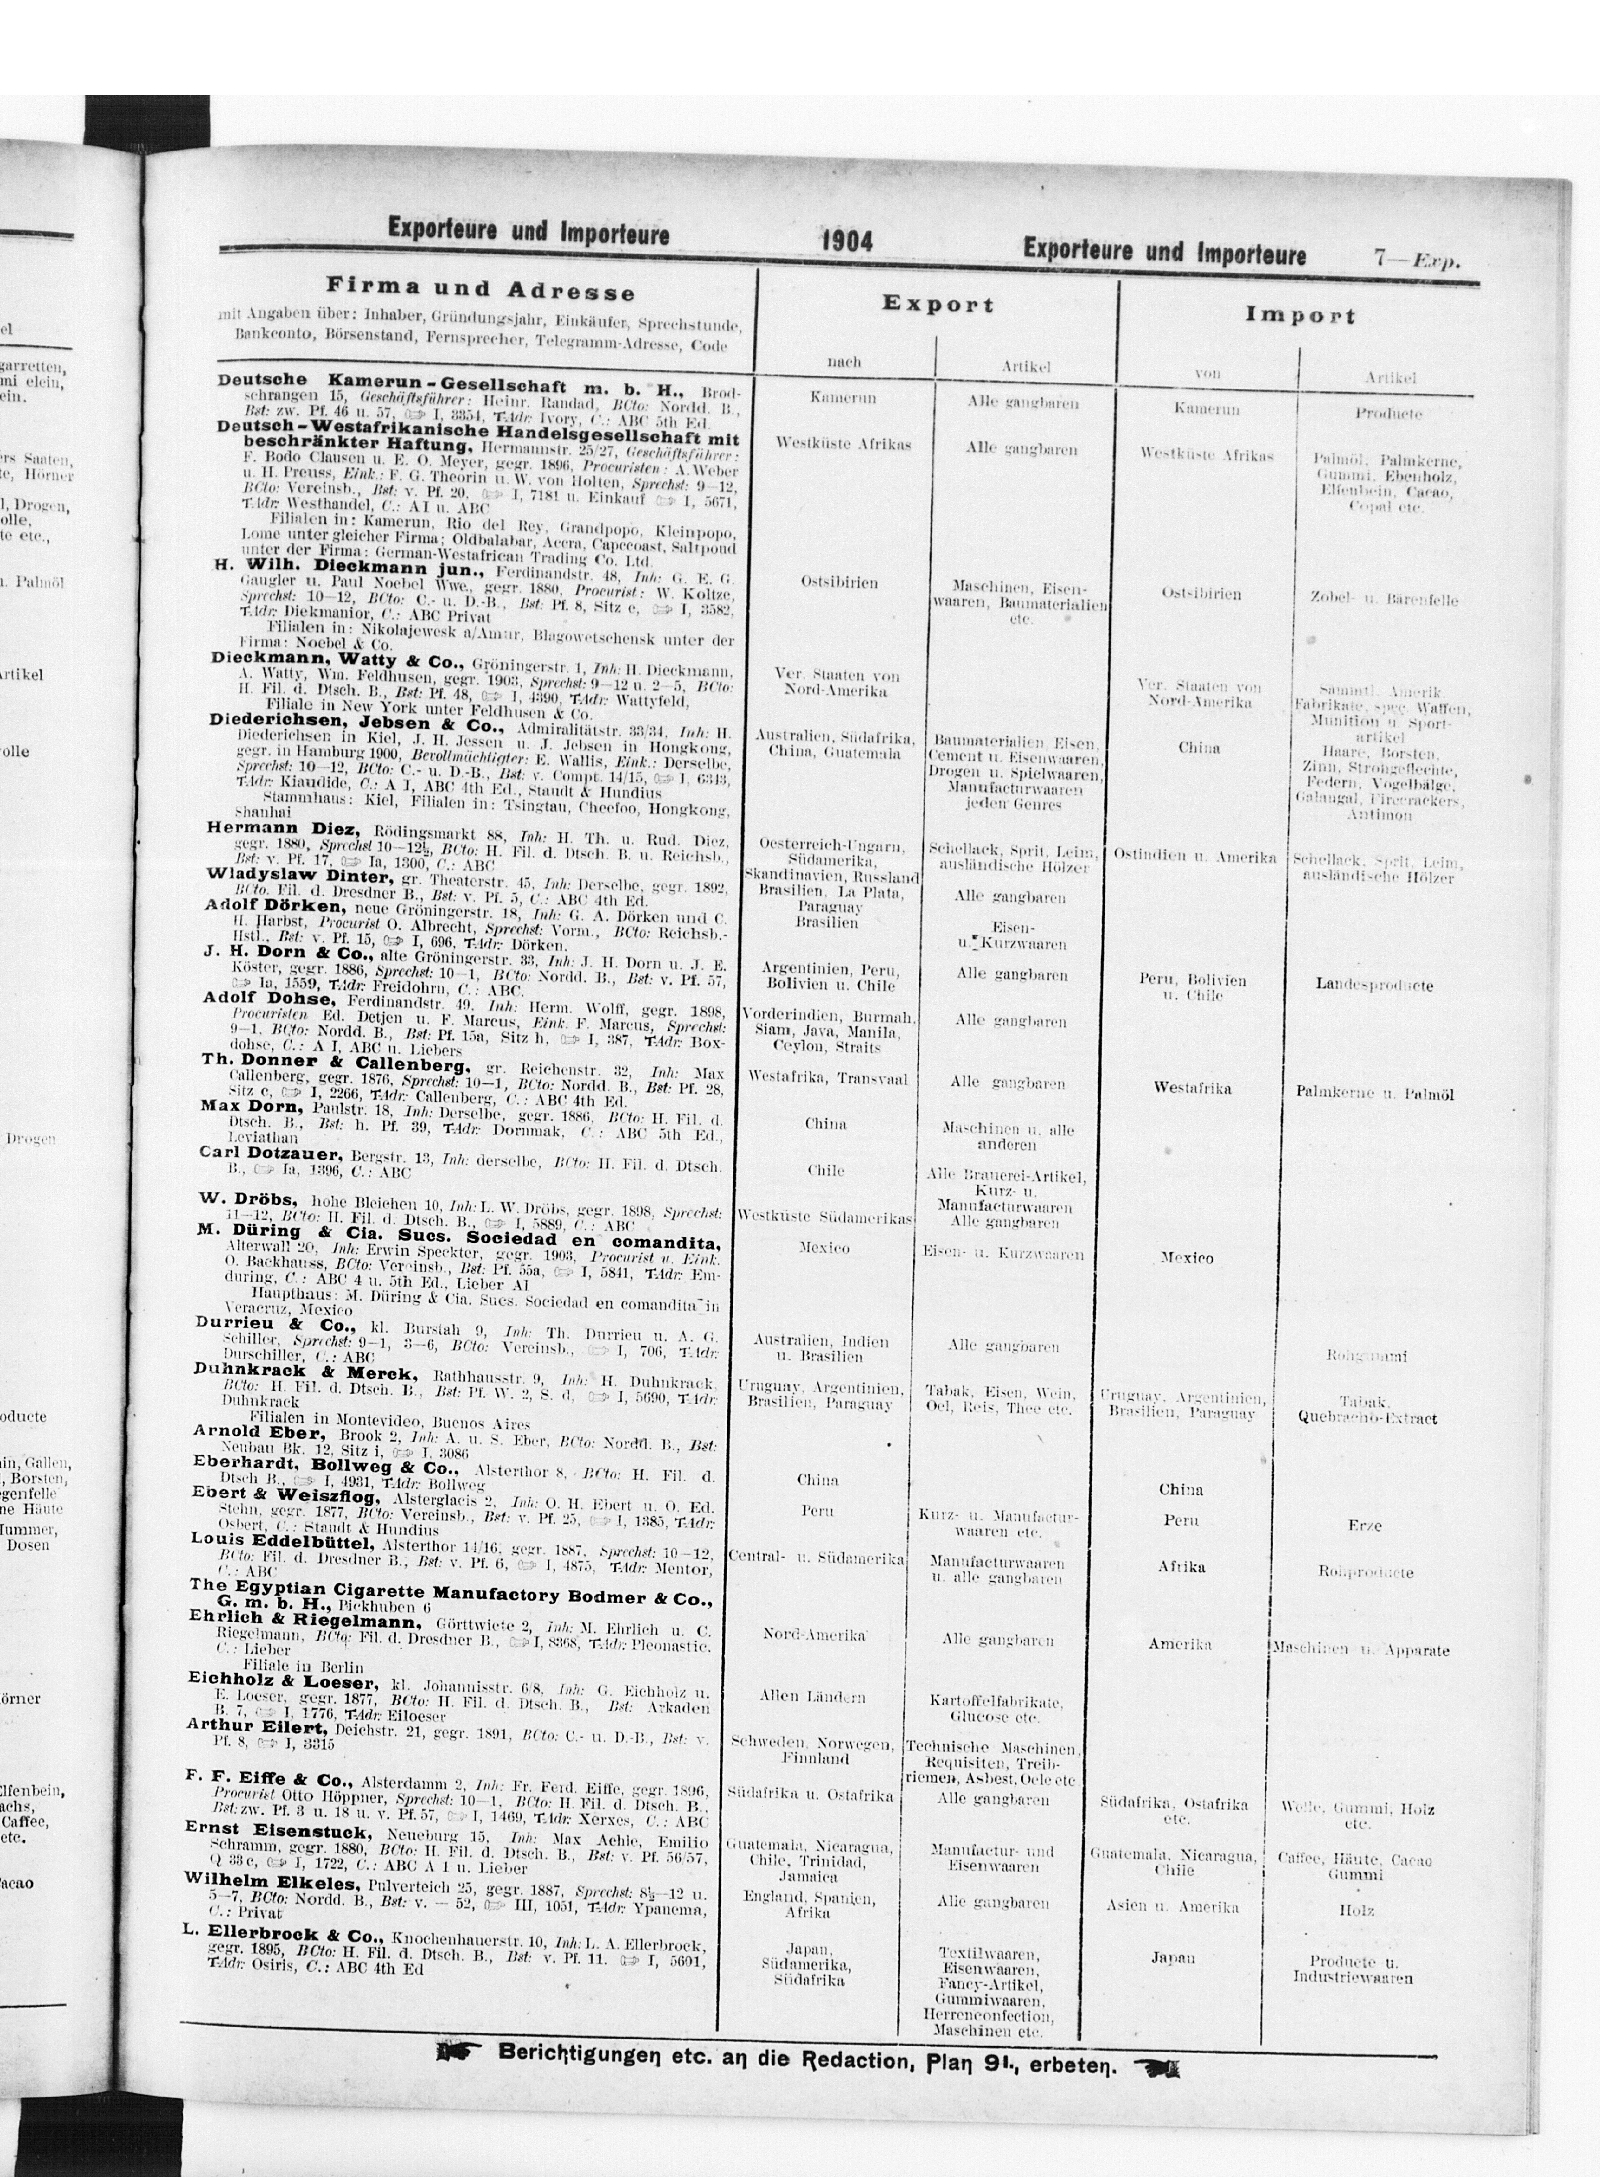 Exporteure und Importeure 1904 Exporteure und Importeure 7—Exp.
Firma und Adresse
mit Angaben über: Inhaber, Gründungsjahr, Einkäufer, Sprechstunde,
Bankconto, Börsenstand, Fernsprecher, Telegramm-Adresse, Code
Export
nach
Artikel
Import
von
Artikel
Deutsche Kamerun-Gesellschaft m. b. H., Brod-
schrangen 15, Geschäftsführer: Heinr. Randad, BCto: Nordd. B.,
Bst: zw. Pf. 46 u. 57, I, 3354, T-Adr: Ivory, C.: ABC 5th Ed.
Kamerun
Alle gangbaren
Kamerun
Producte
Deutsch-Westafrikanische Handelsgesellschaft mit
beschränkter Haftung, Hermannstr. 25/27, Geschäftsführer:
F. Bodo Clausen u. E. O. Meyer, gegr. 1896, Procuristen: A. Weber
u. H. Preuss, Eink.: F. G. Theorin u. W. von Holten, Sprechst: 9–12,
BCto: Vereinsb., Bst: v. Pf. 20, I, 7181 u. Einkauf I, 5671,
T-Adr: Westhandel, C.: A I u. ABC
Filialen in: Kamerun, Rio del Rey, Grandpopo, Kleinpopo,
Lome unter gleicher Firma; Oldbalabar, Accra, Capecoast, Saltpond
unter der Firma: German-Westafrican Trading Co. Ltd.
Westküste Afrikas
Alle gangbaren
Westküste Afrikas
Palmöl, Palmkerne,
Gummi, Ebenholz,
Elfenbein, Cacao,
Copal etc.
H. Wilh. Dieckmann jun., Ferdinandstr. 48, Inh: G. E. G.
Gaugler u. Paul Noebel Wwe., gegr. 1880, Procurist: W. Koltze,
Sprechst: 10–12, BCto: C.- u. D.-B., Bst: Pf. 8, Sitz c, I, 3582,
T-Adr: Diekmanior, C.: ABC Privat
Filialen in: Nikolajewesk a/Amur, Blagowetschensk unter der
Firma: Noebel & Co.
Ostsibirien
Maschinen, Eisen-
waaren, Baumaterialien
etc.
Ostsibirien
Zobel- u. Bärenfelle
Dieckmann, Watty & Co., Gröningerstr. 1, Inh: H. Dieckmann,
A. Watty, Wm. Feldhusen, gegr. 1903, Sprechst: 9–12 u. 2–5, BCto:
H. Fil. d. Dtsch. B., Bst: Pf. 48, I, 4390, T-Adr: Wattyfeld,
Filiale in New York unter Feldhusen & Co.
Ver. Staaten von
Nord-Amerika
Ver. Staaten von
Nord-Amerika
Sämmtl. Amerik.
Fabrikate, spec. Waffen,
Munition u. Sport-
artikel
Diederichsen, Jebsen & Co., Admiralitätstr. 33/34, Inh: H.
Diederichsen in Kiel, J. H. Jessen u. J. Jebsen in Hongkong,
gegr. in Hamburg 1900, Bevollmächtigter: E. Wallis, Eink.: Derselbe,
Sprechst: 10–12, BCto: C.- u. D.-B., Bst: v. Compt. 14/15, I, 6343,
T-Adr: Kiaudide, C.: A I, ABC 4th Ed., Staudt & Hundius
Stammhaus: Kiel, Filialen in: Tsingtau, Cheefoo, Hongkong,
Shanhai
Australien, Südafrika,
China, Guatemala
Baumaterialien Eisen,
Cement u. Eisenwaaren,
Drogen u. Spielwaaren,
Manufacturwaaren
jeden Genres
China
Haare, Borsten,
Zinn, Strohgeflechte,
Federn, Vogelbälge,
Galangal, Firecrackers,
Antimon
Hermann Diez, Rödingsmarkt 88, Inh: H. Th. u. Rud. Diez,
gegr. 1880, Sprechst 10–12½, BCto: H. Fil. d. Dtsch. B. u. Reichsb.,
Bst: v. Pf. 17, Ia, 1300, C.: ABC
Oesterreich-Ungarn,
Südamerika,
Skandinavien, Russland
Schellack, Sprit, Leim,
ausländische Hölzer
Ostindien u. Amerika
Schellack, Sprit, Leim,
ausländische Hölzer
Wladyslaw Dinter, gr. Theaterstr. 45, Inh: Derselbe, gegr. 1892,
BCto. Fil. d. Dresdner B., Bst: v. Pf. 5, C.: ABC 4th Ed.
Brasilien, La Plata,
Paraguay
Alle gangbaren
Adolf Dörken, neue Gröningerstr. 18, Inh: G. A. Dörken und C.
H. Harbst, Procurist O. Albrecht, Sprechst: Vorm., BCto: Reichsb.-
Hstl., Bst: v. Pf. 15, I, 696, T-Adr: Dörken.
Brasilien
Eisen-
u. Kurzwaaren
J. H. Dorn & Co., alte Gröningerstr. 33, Inh: J. H. Dorn u. J. E.
Köster, gegr. 1886, Sprechst: 10–1, BCto: Nordd. B., Bst: v. Pf. 57,
Ia, 1559, T-Adr: Freidohrn, C.: ABC.
Argentinien, Peru,
Bolivien u. Chile
Alle gangbaren
Peru, Bolivien
u. Chile
Landesproducte
Adolf Dohse, Ferdinandstr. 49, Inh: Herm. Wolff, gegr. 1898,
Procuristen Ed. Detjen u. F. Marcus, Eink. F. Marcus, Sprechst:
9–1, BCto: Nordd. B., Bst: Pf. 15a, Sitz h, I, 387, T-Adr: Box-
dohse, C.: A I, ABC u. Liebers
Vorderindien, Burmah,
Siam, Java, Manila,
Ceylon, Straits
Alle gangbaren
Th. Donner & Callenberg, gr. Reichenstr. 32, Inh: Max
Callenberg, gegr. 1876, Sprechst: 10–1, BCto: Nordd. B., Bst: Pf. 28,
Sitz c, I, 2266, T-Adr: Callenberg, C.: ABC 4th Ed.
Westafrika, Transvaal
Alle gangbaren
Westafrika
Palmkerne u. Palmöl
Max Dorn, Paulstr. 18, Inh: Derselbe, gegr. 1886, BCto: H. Fil. d.
Dtsch. B., Bst: h. Pf. 39, T-Adr: Dornmak, C.: ABC 5th Ed.,
Leviathan
China
Maschinen u. alle
anderen
Carl Dotzauer, Bergstr. 13, Inh: derselbe, BCto: H. Fil. d. Dtsch.
B., Ia, 1396, C.: ABC
Chile
Alle Brauerei-Artikel,
Kurz- u.
Manufacturwaaren
W. Dröbs, hohe Bleichen 10, Inh: L. W. Dröbs, gegr. 1898, Sprechst:
11–12, BCto: H. Fil. d. Dtsch. B., I, 5889, C.: ABC
Westküste Südamerikas
Alle gangbaren
M. Düring & Cia. Sucs. Sociedad en comandita,
Alterwall 20, Inh: Erwin Speckter, gegr. 1903, Procurist u. Eink.
O. Backhauss, BCto: Vereinsb., Bst: Pf. 55a, I, 5841, T-Adr: Em-
during, C.: ABC 4 u. 5th Ed., Lieber AI
Haupthaus: M. Düring & Cia. Sucs. Sociedad en comandita in
Veracruz, Mexico
Mexico
Eisen- u. Kurzwaaren
Mexico
Durrieu & Co., kl. Burstah 9, Inh: Th. Durrieu u. A. G.
Schiller, Sprechst: 9–1, 3–6, BCto: Vereinsb., I, 706, T-Adr:
Durschiller, C.: ABC
Australien, Indien
u. Brasilien
Alle gangbaren
Rohgummi
Duhnkrack & Merck, Rathhausstr. 9, Inh: H. Duhnkrack,
BCto: H. Fil. d. Dtsch. B., Bst: Pf. W. 2, S. d, I, 5690, T-Adr:
Duhnkrack
Filialen in Montevideo, Buenos Aires
Uruguay, Argentinien,
Brasilien, Paraguay
Tabak, Eisen, Wein,
Oel, Reis, Thee etc.
Uruguay, Argentinien,
Brasilien, Paraguay
Tabak,
Quebracho-Extract
Arnold Eber, Brook 2, Inh: A. u. S. Eber, BCto: Nordd. B., Bst:
Neubau Bk. 12, Sitz i, I, 3086
Eberhardt, Bollweg & Co., Alsterthor 8, BCto: H. Fil. d.
Dtsch B., I, 4931, T-Adr: Bollweg
China
China
Ebert & Weiszflog, Alsterglacis 2, Inh: O. H. Ebert u. O. Ed.
Stehn, gegr. 1877, BCto: Vereinsb., Bst: v. Pf. 25, I, 1385, T-Adr:
Osbert, C.: Staudt & Hundius
Peru
Kurz- u. Manufactur-
waaren etc.
Peru
Erze
Louis Eddelbüttel, Alsterthor 14/16, gegr. 1887, Sprechst: 10–12,
BCto: Fil. d. Dresdner B., Bst: v. Pf. 6, I, 4875, T-Adr: Mentor,
C.: ABC
Central- u. Südamerika
Manufacturwaaren
u. alle gangbaren
Afrika
Rohproducte
The Egyptian Cigarette Manufactory Bodmer & Co.,
G. m. b. H., Pickhuben 6
Ehrlich & Riegelmann, Görttwiete 2, Inh: M. Ehrlich u. C.
Riegelmann, BCto: Fil. d. Dresdner B., I, 8368, T-Adr: Pleonastic.
C.: Lieber
Filiale in Berlin
Nord-Amerika
Alle gangbaren
Amerika
Maschinen u. Apparate
Eichholz & Loeser, kl. Johannisstr. 6/8, Inh: G. Eichholz u.
E. Loeser, gegr. 1877, BCto: H. Fil. d. Dtsch. B., Bst: Arkaden
B. 7, I, 1776, T-Adr: Eiloeser
Allen Ländern
Kartoffelfabrikate,
Glucose etc.
Arthur Eilert, Deichstr. 21, gegr. 1891, BCto: C.- u. D.-B., Bst: v.
Pf. 8, I, 3315
Schweden, Norwegen,
Finnland
Technische Maschinen,
Requisiten, Treib-
riemen, Asbest, Oele etc
F. F. Eiffe & Co., Alsterdamm 2, Inh: Fr. Ferd. Eiffe, gegr. 1896,
Procurist Otto Höppner, Sprechst: 10–1, BCto: H. Fil. d. Dtsch. B.,
Bst: zw. Pf. 3 u. 18 u. v. Pf. 57, I, 1469, T-Adr: Xerxes, C.: ABC
Südafrika u. Ostafrika
Alle gangbaren
Südafrika, Ostafrika
etc.
Wolle, Gummi, Holz
etc.
Ernst Eisenstuck, Neueburg 15, Inh: Max Aehle, Emilio
Schramm, gegr. 1880, BCto: H. Fil. d. Dtsch. B., Bst: v. Pf. 56/57,
Q 33 c, I, 1722, C.: ABC A I u. Lieber
Guatemala, Nicaragua,
Chile, Trinidad,
Jamaica
Manufactur- und
Eisenwaaren
Guatemala, Nicaragua,
Chile
Caffee, Häute, Cacao
Gummi
Wilhelm Elkeles, Pulverteich 25, gegr. 1887, Sprechst: 8½–12 u.
5–7, BCto: Nordd. B., Bst: v. – 52, III, 1051, T-Adr: Ypanema,
C.: Privat
England, Spanien,
Afrika
Alle gangbaren
Asien u. Amerika
Holz
L. Ellerbrock & Co., Knochenhauerstr. 10, Inh: L. A. Ellerbrock,
gegr. 1895, BCto: H. Fil. d. Dtsch. B., Bst: v. Pf. 11. I, 5601,
T-Adr: Osiris, C.: ABC 4th Ed
Japan,
Südamerika,
Südafrika
Textilwaaren,
Eisenwaaren,
Fancy-Artikel,
Gummiwaaren,
Herrenconfection,
Maschinen etc.
Japan
Producte u.
Industriewaaren
Berichtigungen etc. an die Redaction, Plan 9I., erbeten.